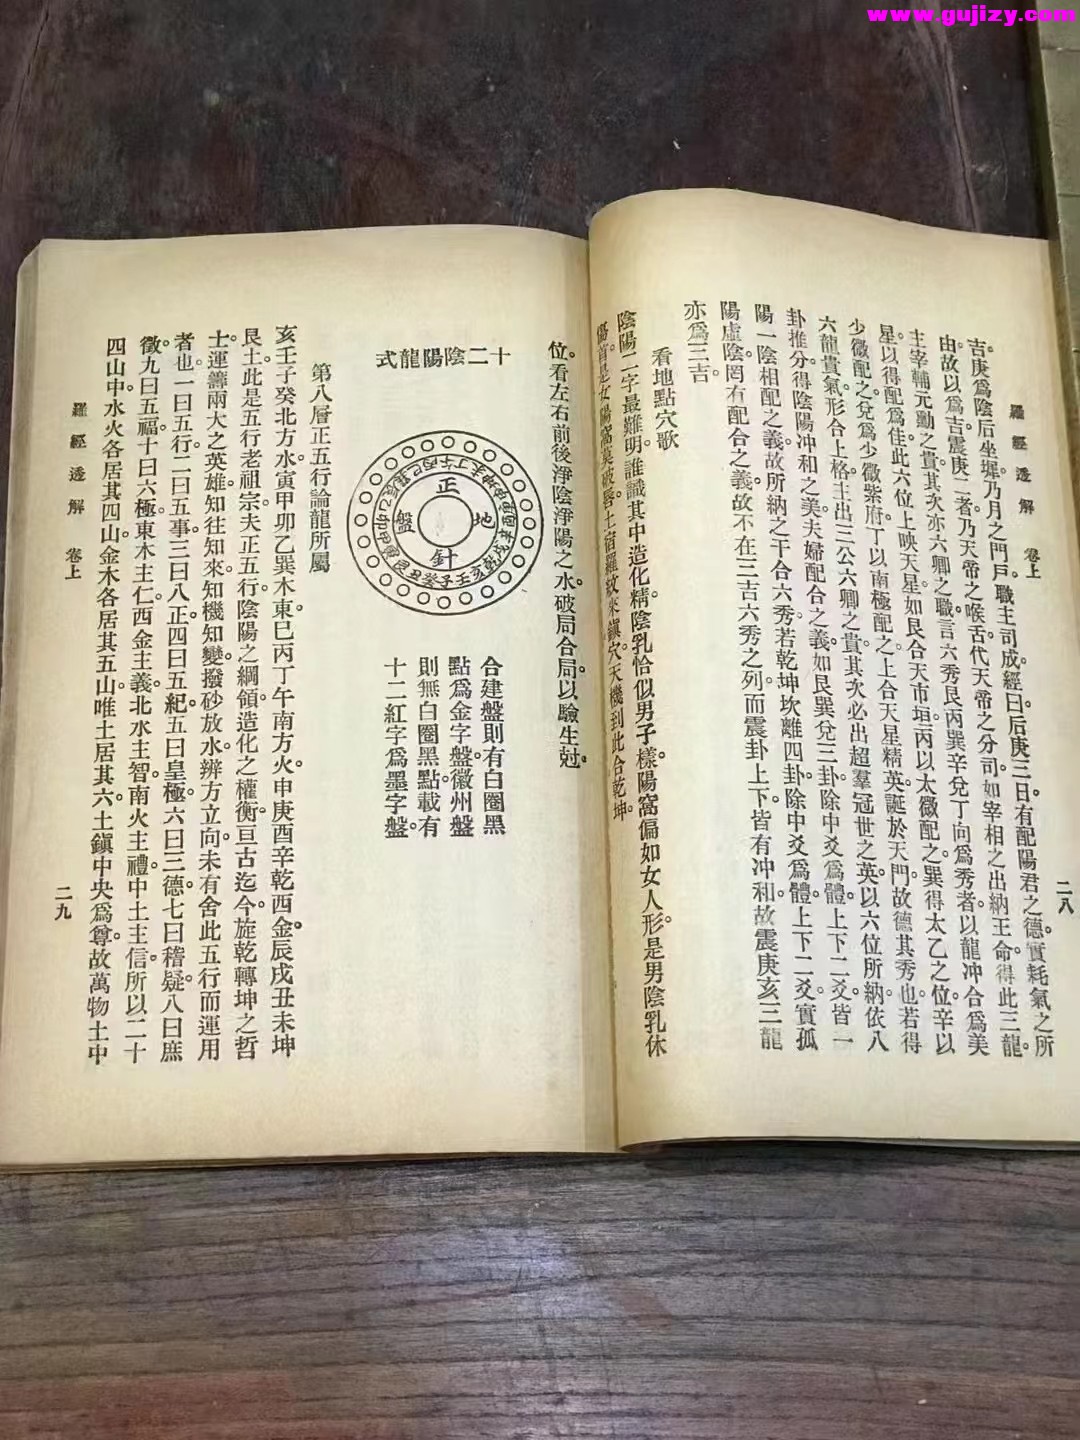 www.gujizy.com
羅經透解 卷上 二八
吉庚爲陰后坐墀乃月之門戶職主司成經曰后庚三日有配陽君之德實耗氣之所
由故以爲吉震庚二者乃天帝之喉舌代天帝之分司如宰相之出納王命得此三龍
主宰輔元勳之貴其次亦六卿之職言六秀艮丙巽辛兌丁向爲秀者以龍冲合爲美
星以得配爲佳此六位上映天星如艮合天市垣丙以太微配之巽得太乙之位辛以
少微配之兌爲少微紫府丁以南極配之上合天星精英誕於天門故德其秀也若得
六龍貴氣形合上格主出三公六卿之貴其次必出超羣冠世之英以六位所納依八
卦推分得陰陽冲和之美夫婦配合之義如艮巽兌三卦除中爻爲體上下二爻皆一
陽一陰相配之義故所納之干合六秀若乾坤坎離四卦除中爻爲體上下二爻實孤
陽虛陰罔有配合之義故不在三吉六秀之列而震卦上下皆有冲和故震庚亥三龍
亦爲三吉
看地點穴歌
陰陽二字最難明誰識其中造化精陰乳恰似男子樣陽窩偏如女人形是男陰乳休
傷首是女陽窩莫破唇土宿羅紋來鎮穴天機到此合乾坤
位看左右前後淨陰淨陽之水破局合局以驗生尅
十二陰陽龍式
正
地
針
盤
合建盤則有白圈黑
點爲金字盤徽州盤
則無白圈黑點載有
十二紅字爲墨字盤
第八層正五行論龍所屬
亥壬子癸北方水寅甲卯乙巽木東巳丙丁午南方火申庚酉辛乾西金辰戌丑未坤
艮土此是五行老祖宗夫正五行陰陽之綱領造化之權衡亘古迄今旋乾轉坤之哲
士運籌兩大之英雄知往知來知機知變撥砂放水辨方立向未有舍此五行而運用
者也一曰五行二曰五事三曰八正四曰五紀五曰皇極六曰三德七曰稽疑八曰庶
徵九曰五福十曰六極東木主仁西金主義北水主智南火主禮中土主信所以二十
四山中水火各居其四山金木各居其五山唯土居其六土鎮中央爲尊故萬物土中
羅經透解 卷上 二九